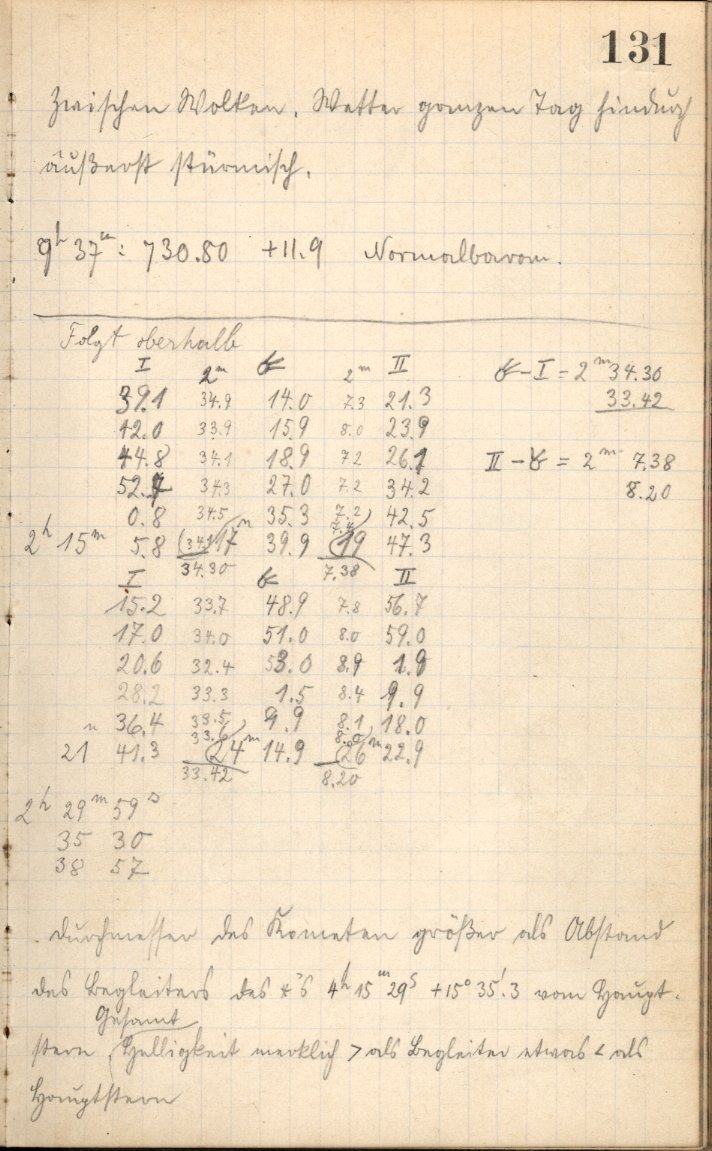 131
Zwischen Wolken. Wetter ganzen Tag hindurch
äußerst stürmisch.
9h 37m: 730.80 +11.9 Normalbarom.
Folgt oberhalb
I 2m ☄ 2m II ☄-I = 2m 34.30
39.1 34.9 14.0 7.3 21.3 33.42
42.0 33.9 15.9 8.0 23.9
44.8 34.1 18.9 7.2 26.1 II-☄ = 2m 7.38
52.7 34.3 27.0 7.2 34.2 8.20
0.8 34.5 35.3 7.2 42.5
2h 15m 5.8 (34.1) 17m 39.9 7.4 19 47.3
34.30 7.38
I ☄ II
15.2 33.7 48.9 7.8 56.7
17.0 34.0 51.0 8.0 59.0
20.6 32.4 53.0 8.9 1.9
28.2 33.3 1.5 8.4 9.9
36.4 33.5 9.9 8.1 18.0
21 41.3 33.6 24m 14.9 8.0 26m 22.9
33.42 8.20
2h 29m 59s
35 30
38 57
Durchmesser des Kometen größer als Abstand
des Begleiters des *'s 4h 15m 29s +15° 35'.3 vom Haupt-
Gesamt
stern Helligkeit merklich > als Begleiter etwas < als
Hauptstern